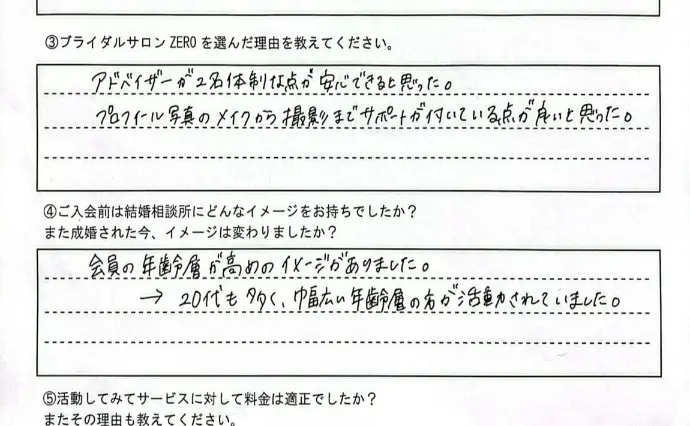 ③ブライダルサロン ZERO を選んだ理由を教えてください。
アドバイザーが2名体制な点が安心できると思った。
プロフィール写真のメイクから撮影までサポートが付いている点が良いと思った。
④ご入会前は結婚相談所にどんなイメージをお持ちでしたか？
また成婚された今、イメージは変わりましたか？
会員の年齢層が高めのイメージがありました。
→ 20代も多く、幅広い年齢層の方が活動されていました。
⑤活動してみてサービスに対して料金は適正でしたか？
またその理由も教えてください。